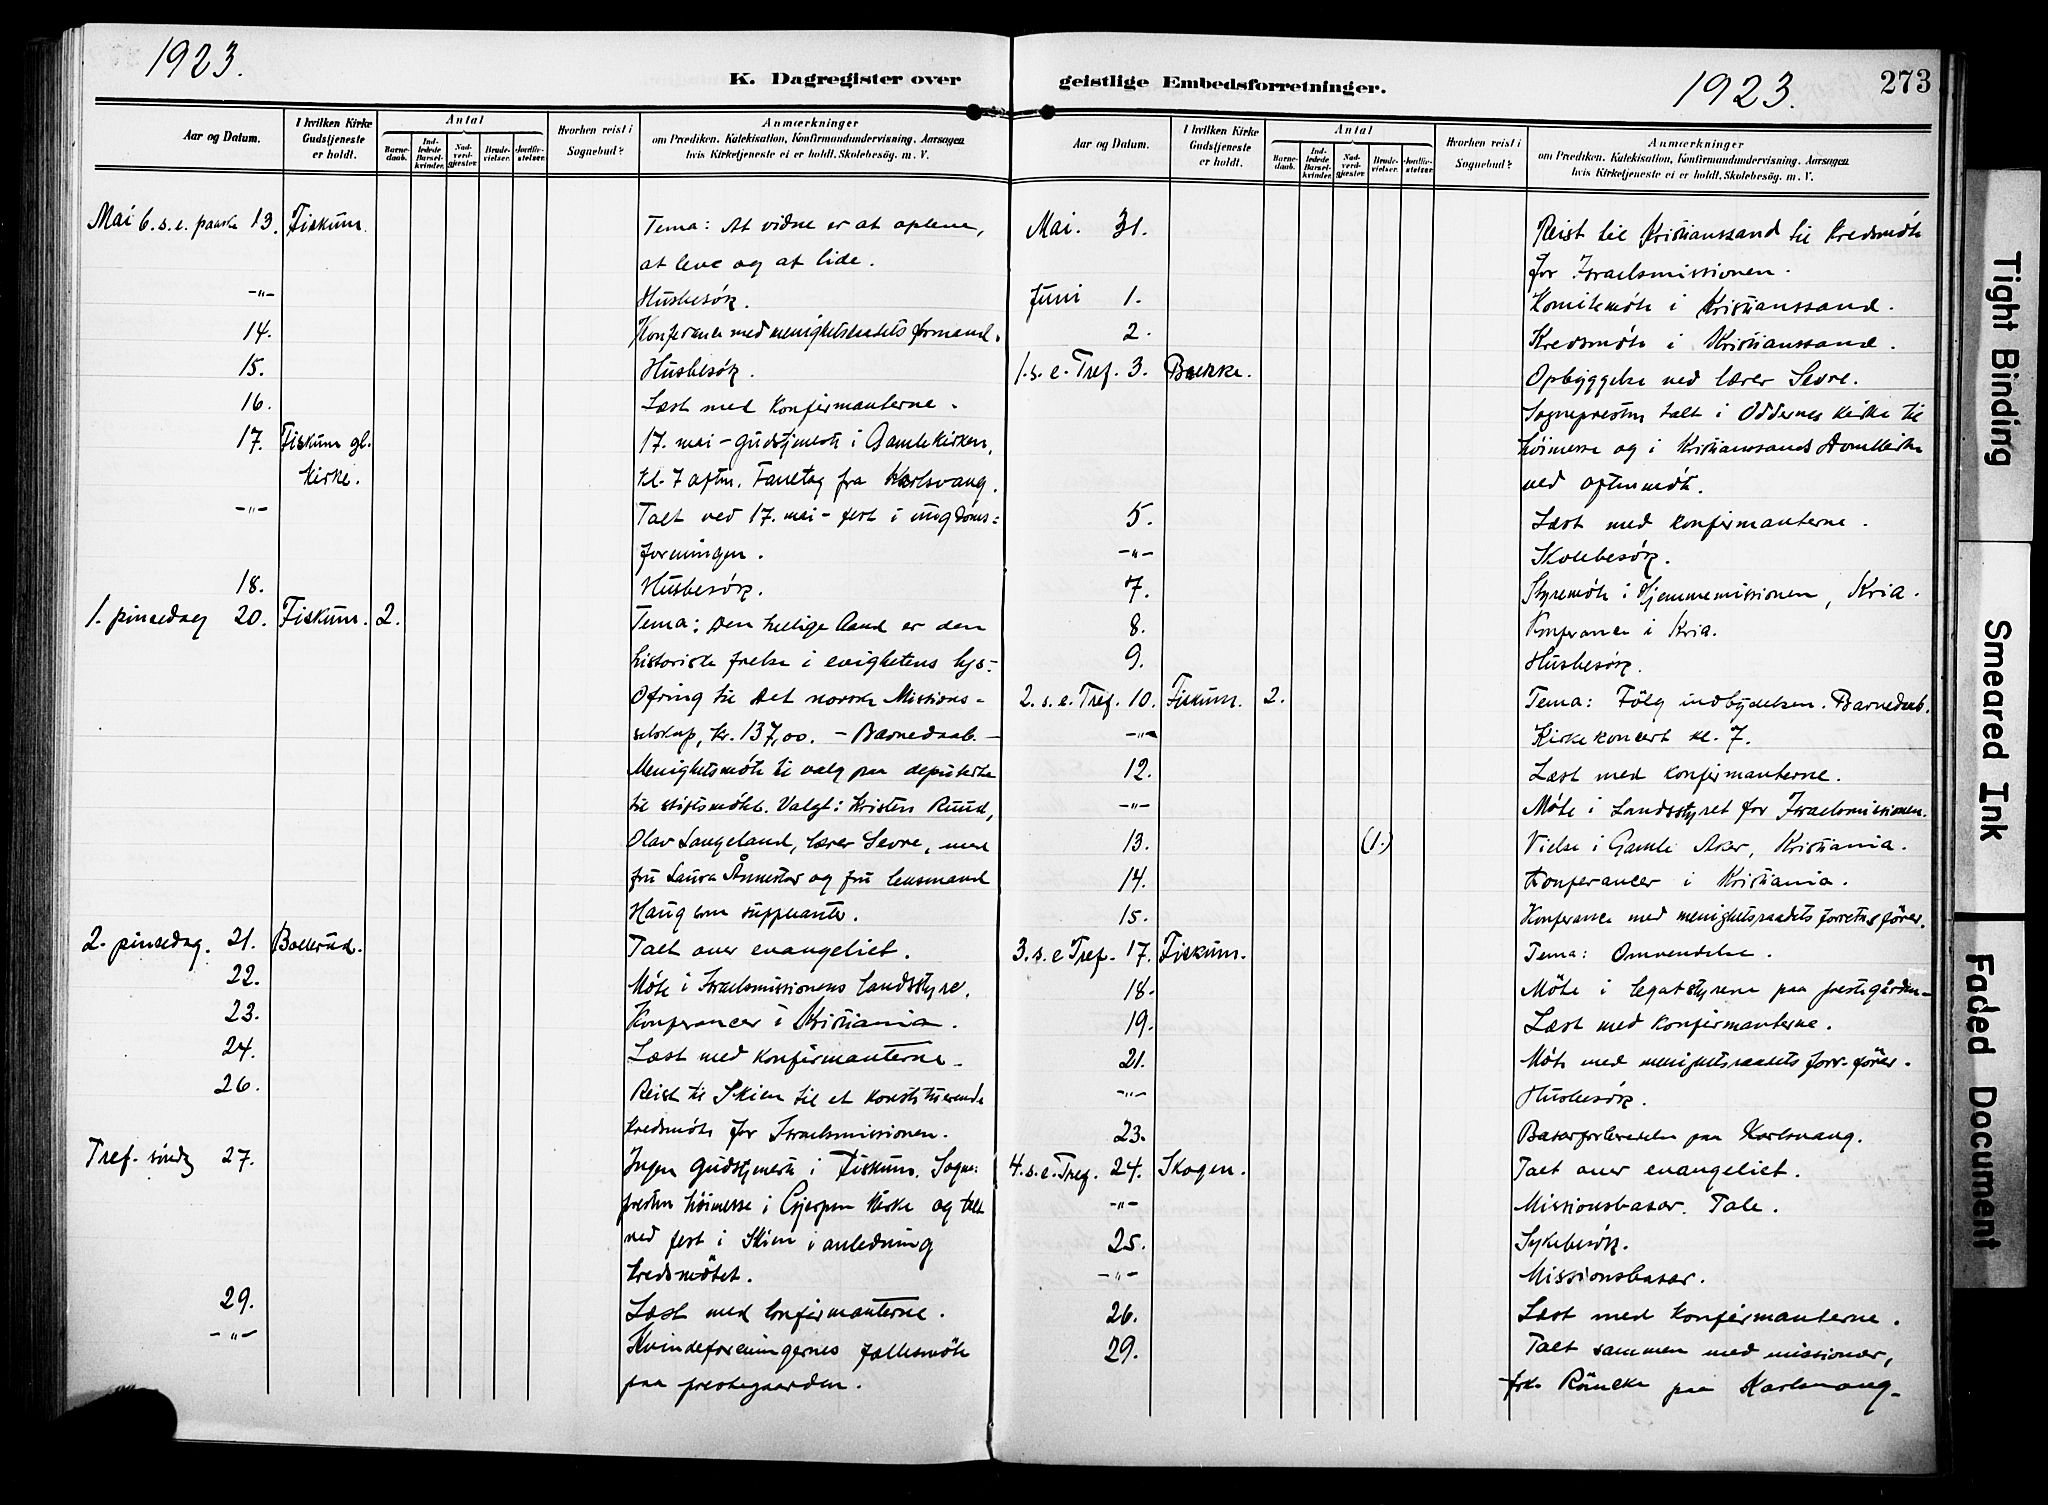 1923.
K. Dagregister over
Aar og Datum.
I hvilken Kirke Gudstjeneste er holdt.
Antal
Barnedaab.
Indledede Barselkvinder.
Nadverdgjester.
Brudevielser.
Jordfæstelser.
Hvorhen reist i Sognebud?
Anmærkninger
om Prædiken, Katekisation, Konfirmandundervisning, Aarsagen
hvis Kirketjeneste ei er holdt, Skolebesøg. m. V.
Mai 6. s. e. paaske 13. Fiskum. Tema: At vidne er at opleve,
at leve og at lide.
-"- Husbesøk.
14. Konferance med menighetsraadets formand.
15. Husbesøk.
16. Læst med konfirmanterne.
17. Fiskum gl. 17. mai - gudstjeneste i Gamlekirken,
Kirke. kl. 7 aftn. Fanetog fra Karlsvang.
-"- Talt ved 17. mai - fest i ungdoms=
foreningen.
18. Husbesøk.
1. pinsedag 20. Fiskum. 2. Tema: Den hellige Aand er den
historiske frelse i evighetens lys.-
Ofring til Det norske Missions-
selskap, kr. 137,00. - Barnedaab.-
Menighetsmøte til valg paa deputerte
til stiftsmøtet. Valgt: Kristen Ruud,
Olav Langeland, lærer Sevre, med
fru Laura Ånnestad og fru lensmand
Haug som suppleanter.
2. pinsedag. 21. Bollerud. Talt over evangeliet.
22. Møte i Israelsmissionens landsstyre.
23. Konferancer i Kristiania.
24. Læst med konfirmanterne.
26. Reist til Skien til et konstituerende
kredsmøte for Israelsmissionen.
Tref. søndg 27. Ingen gudstjeneste i Fiskum. Sogne=
presten høimesse i Gjerpen kirke og talt
ved fest i Skien i anledning
kredsmøtet.
29. Læst med konfirmanterne.
-"- Kvindeforeningernes fællesmøte
paa prestegaarden.
geistlige Embedsforretninger.
1923.
273
Aar og Datum.
I hvilken Kirke Gudstjeneste er holdt.
Antal
Barnedaab.
Indledede Barselkvinder.
Nadverdgjester.
Brudevielser.
Jordfæstelser.
Hvorhen reist i Sognebud?
Anmærkninger
om Prædiken, Katekisation, Konfirmandundervisning, Aarsagen
hvis Kirketjeneste ei er holdt, Skolebesøg. m. V.
Mai. 31. Reist til Kristianssand til kredsmøte
for Israelsmissionen.
Juni 1. Komitemøte i Kristianssand.
2. Kredsmøte i Kristianssand.
1. s. e. Tref. 3. Bakke. Opbyggelse ved lærer Sevre.
Sognepresten talt i Oddernes kirke til
høimesse og i Kristianssands Domkirke
ved aftenmøte.
5. Læst med konfirmanterne.
-"- Skolebesøk.
7. Styremøte i Hjemmemissionen, Kria.
8. Konferance i Kria.
9. Husbesøk.
2. s. e. Tref. 10. Fiskum. 2. Tema: Følg indbydelsen. Barnedaab.
-"- Kirkekoncert kl. 7.
12. Læst med konfirmanterne.
-"- Møte i Landsstyret for Israelsmissionen.
13. (1.) Vielse i Gamle Aker, Kristiania.
14. Konferancer i Kristiania.
15. Konferance med menighetsraadets forretnsfører.
3. s. e Tref. 17. Fiskum. Tema: Omvendelse.
18. Møte i legatstyrene paa prestegården.
19. Læst med konfirmanterne.
21. Møte med menighetsraadets forr.fører.
-"- Husbesøk.
23. Basarforberedelse paa Karlsvang.
4. s. e. Tref. 24. Skogen. Talt over evangeliet.
-"- Missionsbasar. Tale.
25. Sykebesøk.
-"- Missionsbasar.
26. Læst med konfirmanterne.
29. Talt sammen med missionær,
frk. Röncke paa Karlsvang.
Tight Binding
Smeared Ink
Faded Document